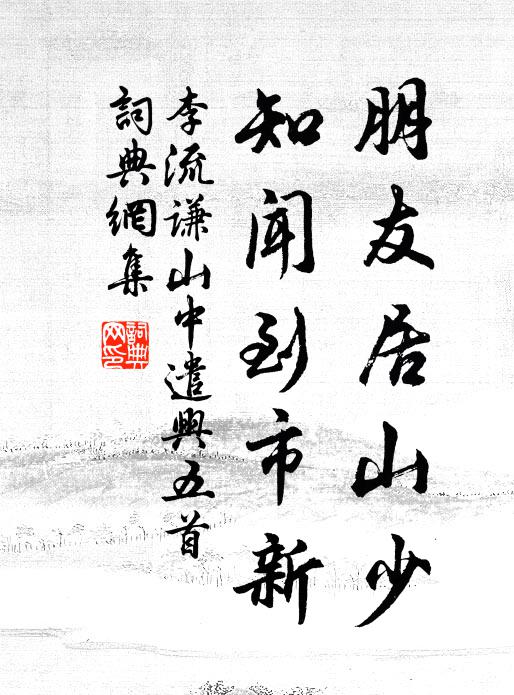 朋友居山少
知聞到市新
李流謙山中遣興五首
詞典網集
詞典網印